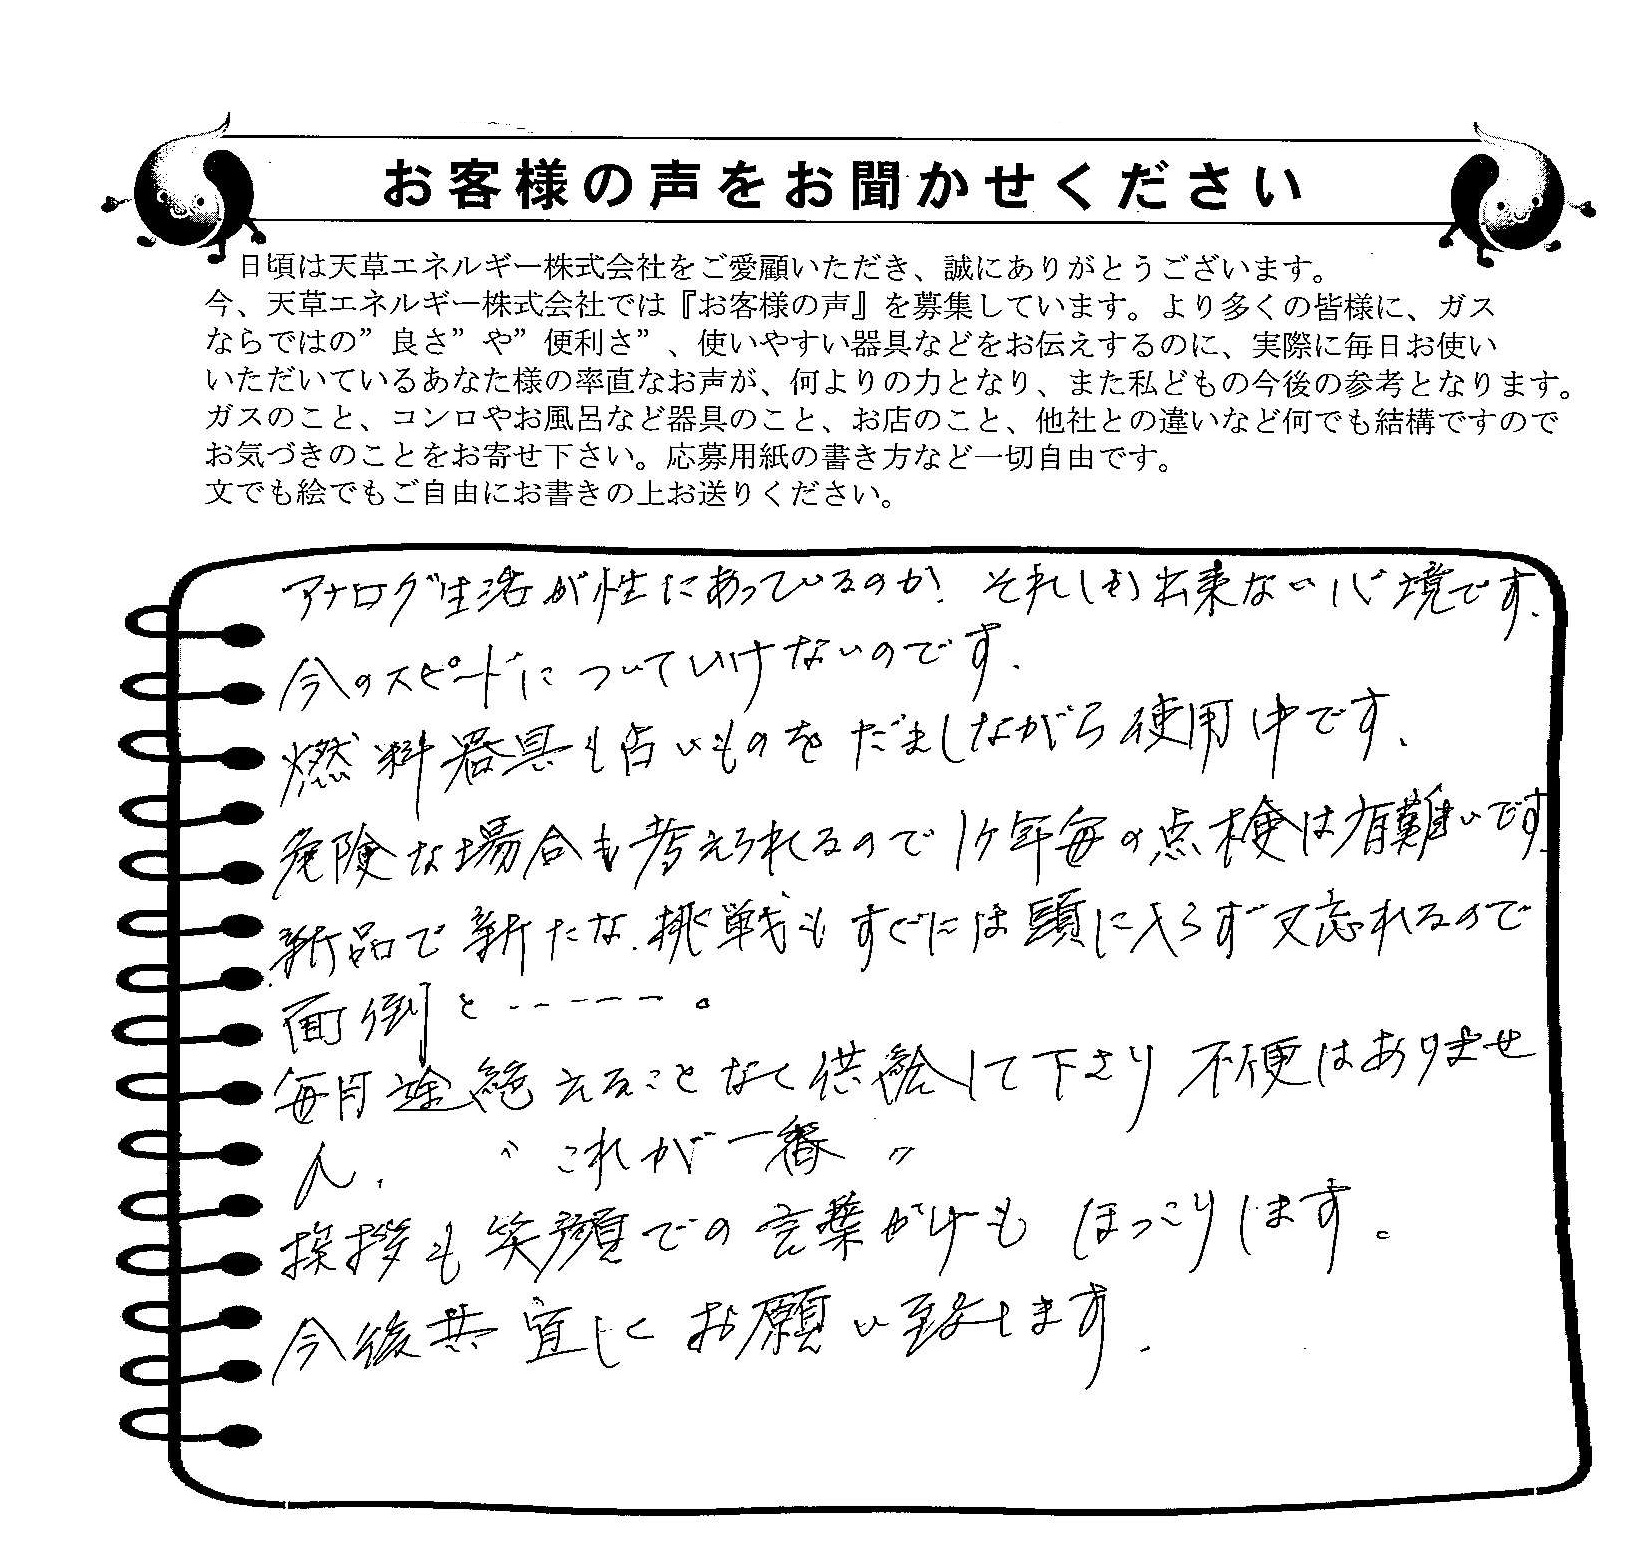 お客様の声をお聞かせください
日頃は天草エネルギー株式会社をご愛顧いただき、誠にありがとうございます。
今、天草エネルギー株式会社では『お客様の声』を募集しています。より多くの皆様に、ガス
ならではの”良さ”や”便利さ”、使いやすい器具などをお伝えするのに、実際に毎日お使い
いただいているあなた様の率直なお声が、何よりの力となり、また私どもの今後の参考となります。
ガスのこと、コンロやお風呂など器具のこと、お店のこと、他社との違いなど何でも結構ですので
お気づきのことをお寄せ下さい。応募用紙の書き方など一切自由です。
文でも絵でもご自由にお書きの上お送りください。
アナログ生活が性にあっているのか、それしか出来ない心境です、
今のスピードについていけないのです、
燃料器具も古いものをだましながら使用中です、
危険な場合も考えられるので1ヶ年毎の点検は有難いです、
新品で新たな挑戦もすぐには頭に入らず又忘れるので
面倒と-----。
毎月途絶えることなく供給して下さり不便はありませ
ん、 〝これが一番〃
挨拶も笑顔での言葉がけもほっこりします。
今後共宜しくお願い致します、